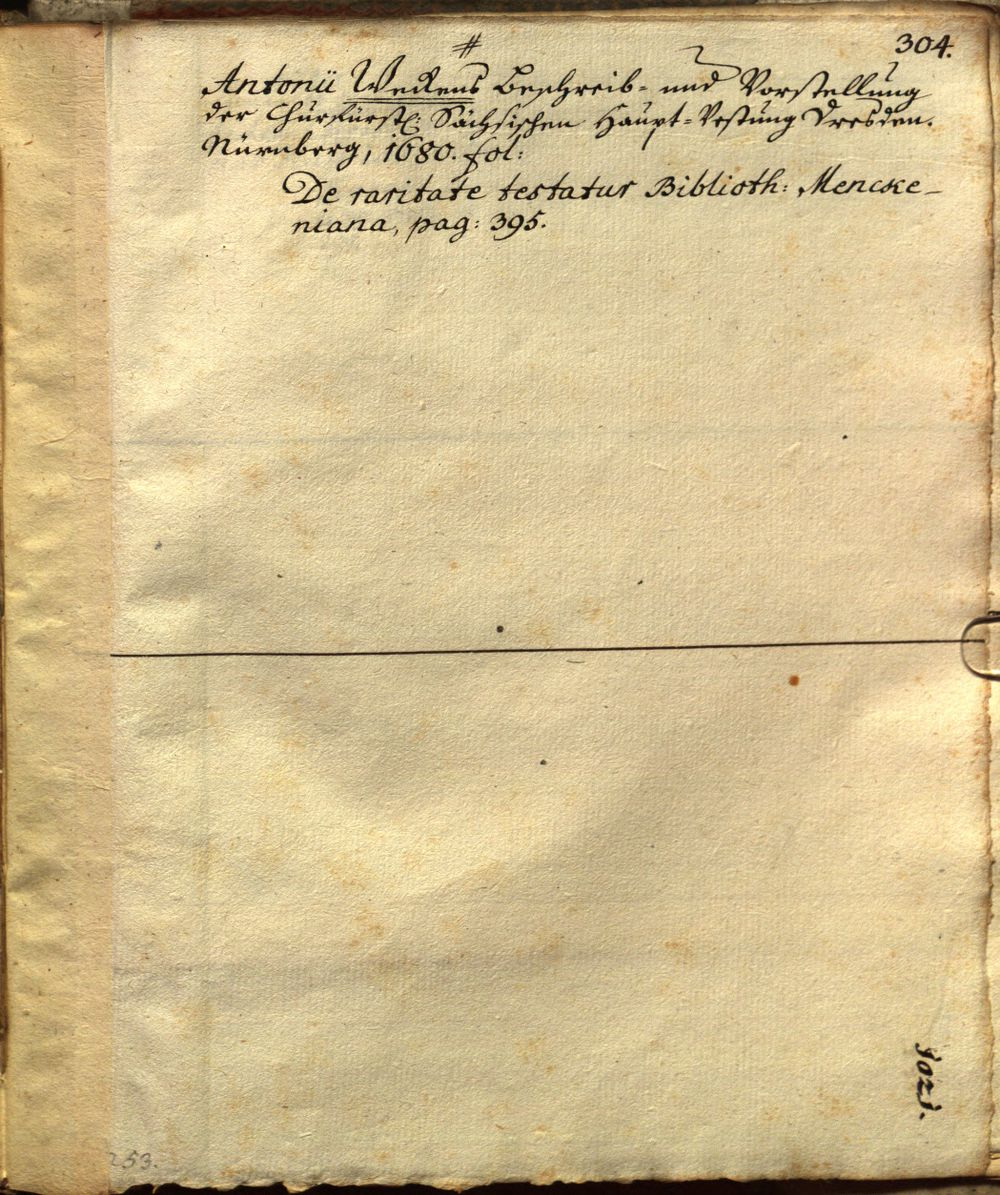 304.
#
Antonii Weckens Beschreib- und Vorstellung
der Churfürstl: Sächsischen Haupt-Vestung Dresden.
Nürnberg, 1680. fol:
De raritate testatur Biblioth: Mencke-
niana, pag: 395.
1021.
253.